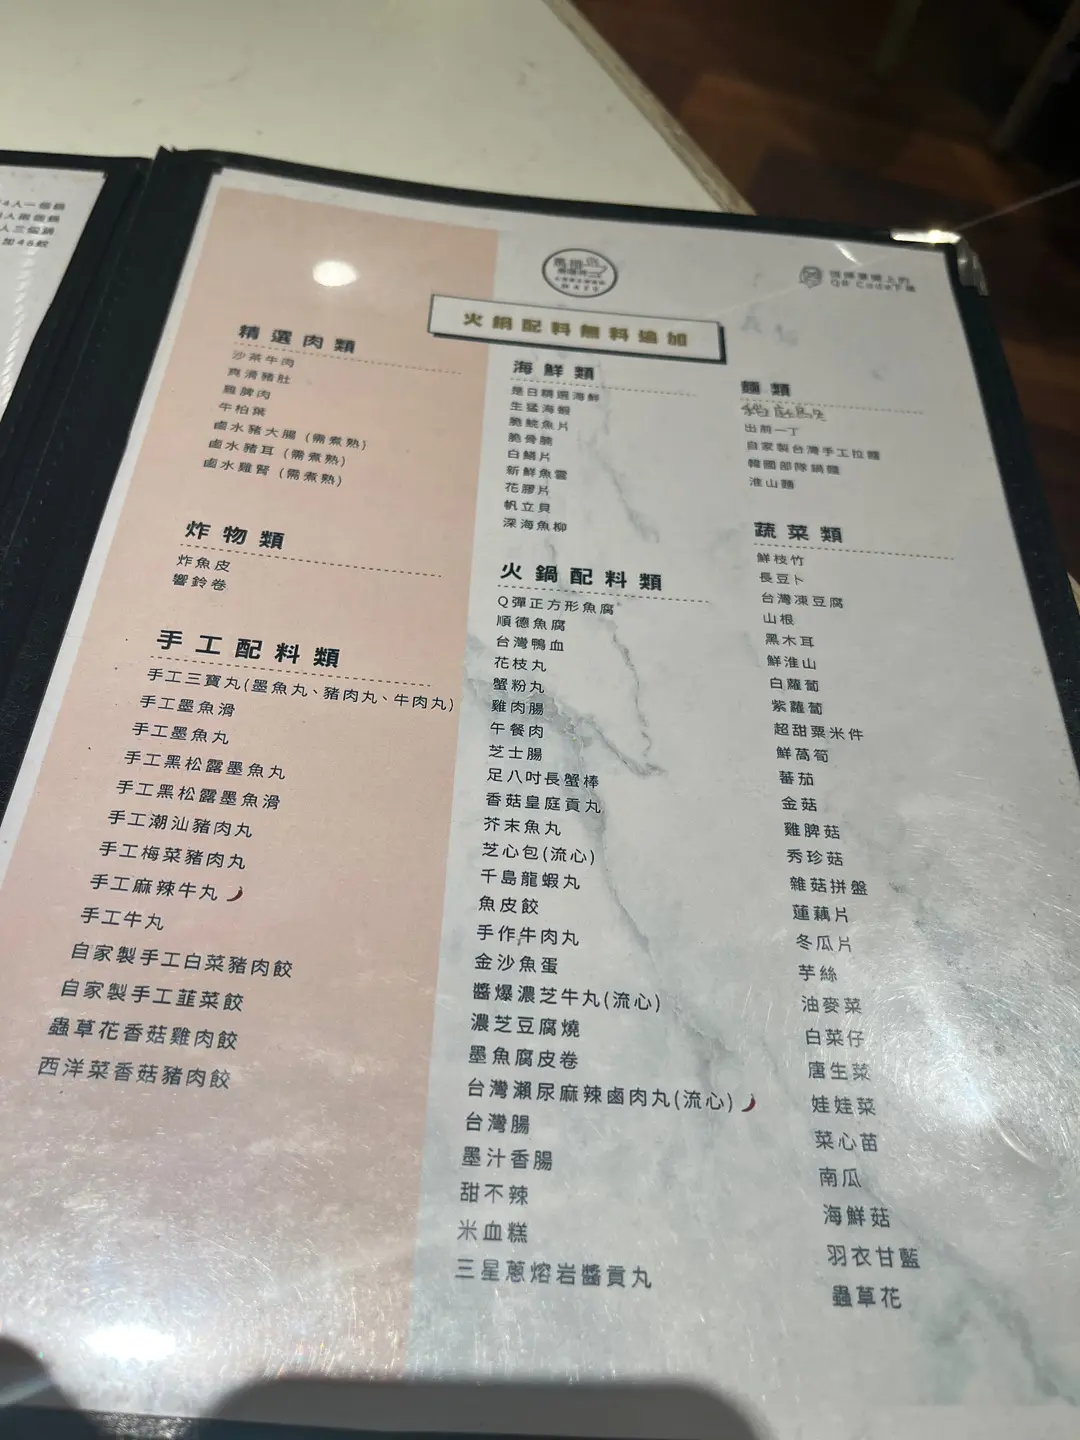 4人一個鍋
人兩個鍋
人三個鍋
加46蚊
火鍋配料無料追加
QR Code下單
精選肉類
沙茶牛肉
爽滑豬肚
雞脾肉
牛柏葉
鹵水豬大腸 (需煮熟)
鹵水豬耳 (需煮熟)
鹵水雞腎 (需煮熟)
炸物類
炸魚皮
響鈴卷
手工配料類
手工三寶丸(墨魚丸、豬肉丸、牛肉丸)
手工墨魚滑
手工墨魚丸
手工黑松露墨魚丸
手工黑松露墨魚滑
手工潮汕豬肉丸
手工梅菜豬肉丸
手工麻辣牛丸
手工牛丸
自家製手工白菜豬肉餃
自家製手工韮菜餃
蟲草花香菇雞肉餃
西洋菜香菇豬肉餃
海鮮類
是日精選海鮮
生猛海蝦
脆鯇魚片
脆骨腩
白鱔片
新鮮魚雲
花膠片
帆立貝
深海魚柳
火鍋配料類
Q彈正方形魚腐
順德魚腐
台灣鴨血
花枝丸
蟹粉丸
雞肉腸
午餐肉
芝士腸
足八吋長蟹棒
香菇皇庭貢丸
芥末魚丸
芝心包(流心)
千島龍蝦丸
魚皮餃
手作牛肉丸
金沙魚蛋
醬爆濃芝牛丸(流心)
濃芝豆腐燒
墨魚腐皮卷
台灣瀨尿麻辣鹵肉丸(流心)
台灣腸
墨汁香腸
甜不辣
米血糕
三星蔥熔岩醬貢丸
麵類
出前一丁
自家製台灣手工拉麵
韓國部隊鍋麵
淮山麵
蔬菜類
鮮枝竹
長豆卜
台灣凍豆腐
山根
黑木耳
鮮淮山
白蘿蔔
紫蘿蔔
超甜粟米件
鮮萵筍
蕃茄
金菇
雞脾菇
秀珍菇
雜菇拼盤
蓮藕片
冬瓜片
芋絲
油麥菜
白菜仔
唐生菜
娃娃菜
菜心苗
南瓜
海鮮菇
羽衣甘藍
蟲草花